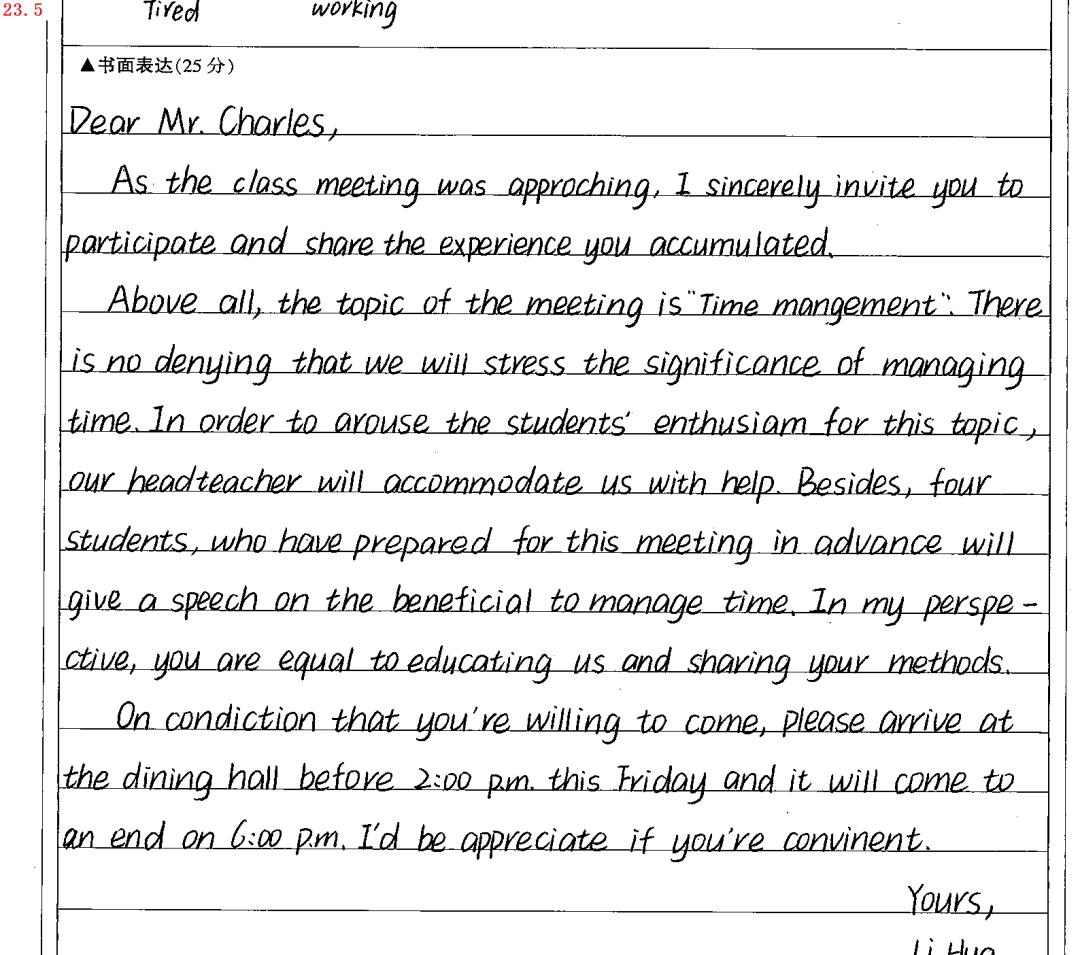 23.5
Tired working
▲书面表达(25分)
Dear Mr. Charles,
As the class meeting was approching, I sincerely invite you to
participate and share the experience you accumulated.
Above all, the topic of the meeting is "Time mangement". There
is no denying that we will stress the significance of managing
time. In order to arouse the students' enthusiam for this topic,
our headteacher will accommodate us with help. Besides, four
students, who have prepared for this meeting in advance will
give a speech on the beneficial to manage time. In my perspe-
ctive, you are equal to educating us and sharing your methods.
On condiction that you're willing to come, please arrive at
the dining hall before 2:00 p.m. this Friday and it will come to
an end on 6:00 p.m. I'd be appreciate if you're convinent.
Yours,
Li Hua